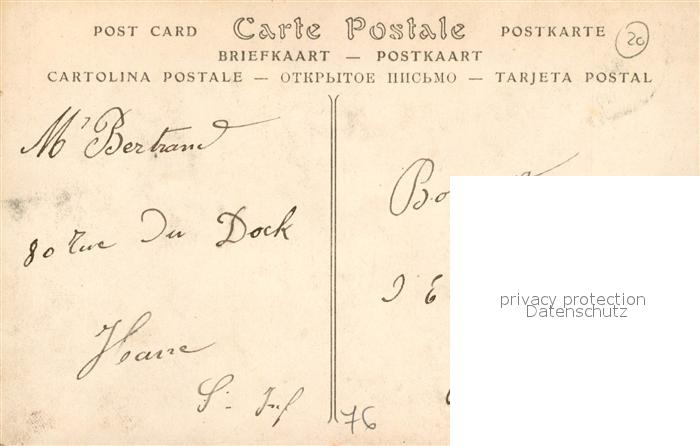 POST CARD Carte Postale POSTKARTE 20
BRIEFKAART — POSTKAART
CARTOLINA POSTALE — ОТКРЫТОЕ ПИСЬМО — TARJETA POSTAL
Mr Bertrand
80 rue Du Dock
Havre
S. Inf
76
privacy protection
Datenschutz